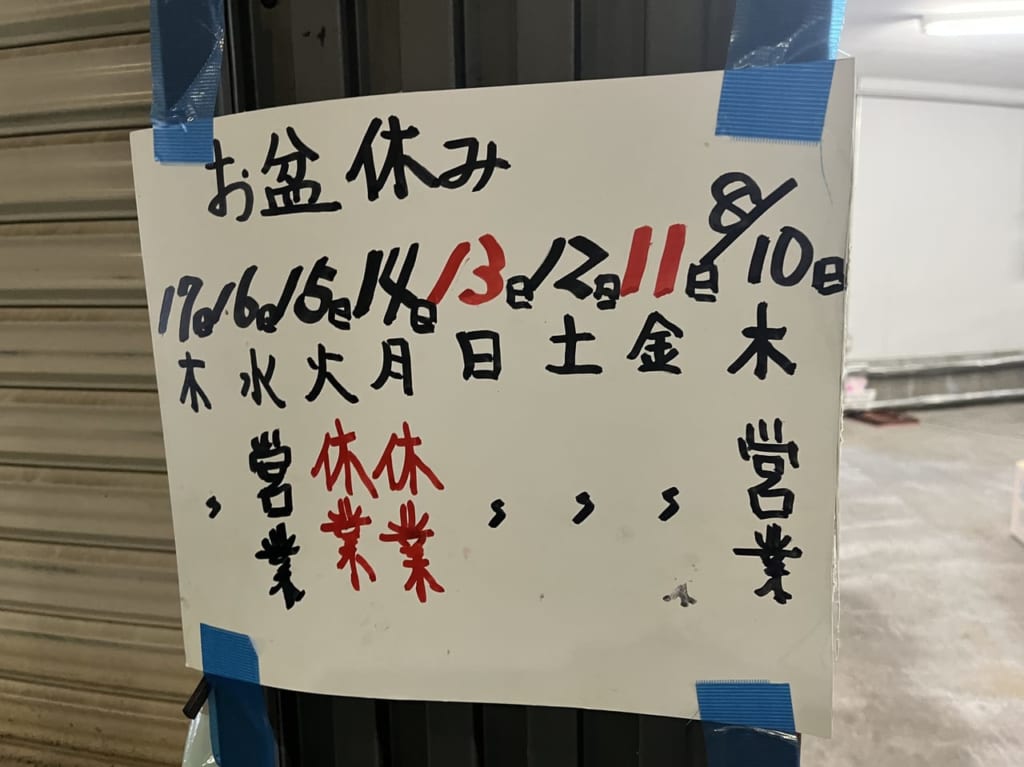 お盆休み
8/10日 木 営業
11日 金 〃
12日 土 〃
13日 日 〃
14日 月 休業
15日 火 休業
16日 水 営業
17日 木 〃